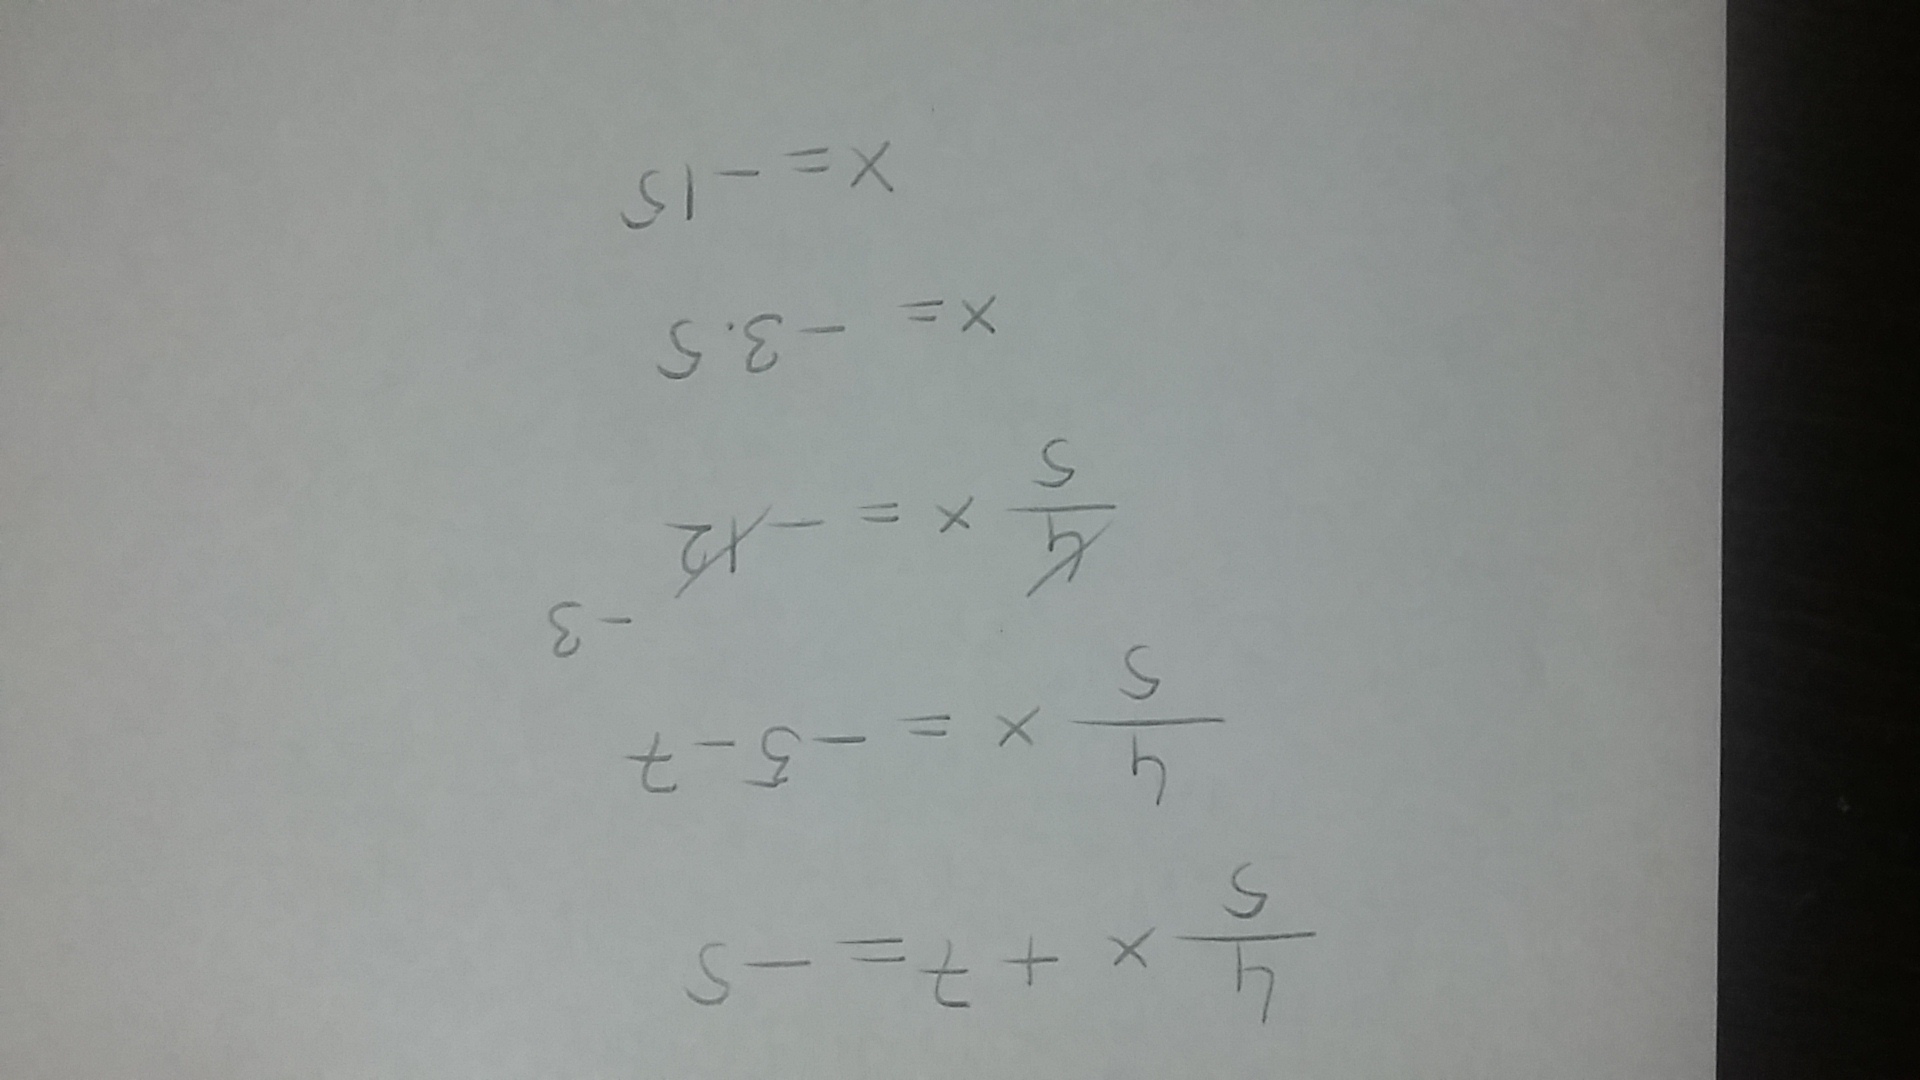 4/5 x + 7 = -5
4/5 x = -5 - 7
4/5 x = -12
-3
x = -3.5
x = -15